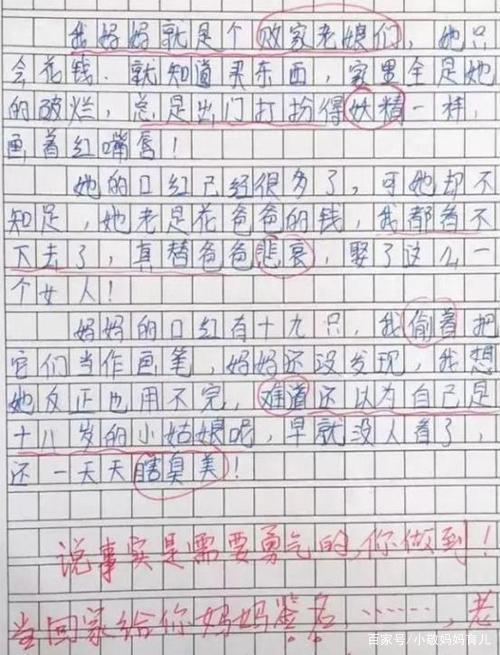 我妈妈就是个败家老娘们，她只
会花钱．就知道买东西，家里全是她
的破烂，总是出门打扮得妖精一样，
画着红嘴唇！
她的口红已经很多了，可她却不
知足，她老是花爸爸的钱，我都看不
下去了，真替爸爸悲哀，娶了这么一
个女人！
妈妈的口红有十九只，我偷着把
它们当作画笔，妈妈还没发现，我想
她反正也用不完，难道还以为自己是
十八岁的小姑娘呢，早就没人看了，
还一天天瞎臭美！
说事实是需要勇气的，你做到！
当回家给你妈妈签名，……，老
百家号/小敬妈妈育儿